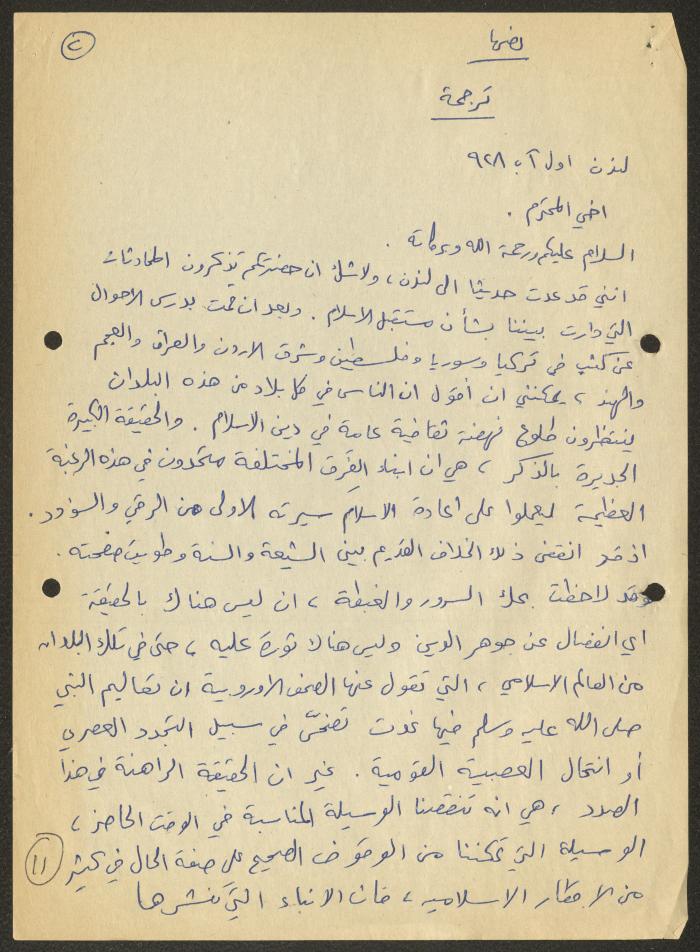 ٢
نصها
ترجمة
لندن اول آب ٩٢٨
اخي المحترم .
السلام عليكم ورحمة الله وبركاته .
انني قد عدت حديثا الى لندن ، ولا شك ان حضرتكم تذكرون المحادثات
التي دارت بيننا بشأن مستقبل الاسلام . وبعد ان قمت بدرس الاحوال
عن كثب في تركيا وسوريا وفلسطين وشرق الاردن والعراق والعجم
والهند ، يمكنني ان اقول ان الناس في كل بلاد من هذه البلدان
ينتظرون طلوع نهضة ثقافية عامة في دين الاسلام . والحقيقة الكبيرة
الجديرة بالذكر ، هي ان ابناء الفِرَق المختلفة متحدون في هذه الرغبة
العظيمة ليعملوا على اعادة الاسلام سيرته الاولى من الرقي والسؤدد .
اذ قد انقضى ذلك الخلاف القديم بين الشيعة والسنة وطويت صفحته .
وقد لاحظت بملء السرور والغبطة ، ان ليس هناك بالحقيقة
اي انفصال عن جوهر الدين وليس هناك ثورة عليه ، حتى في تلك البلدان
من العالم الاسلامي ، التي تقول عنها الصحف الاوروبية ان تعاليم النبي
صلى الله عليه وسلم فيها غدت تضحّى في سبيل التجدد العصري
أو انتحال العصبية القومية . غير ان الحقيقة الراهنة في هذا
الصدد ، هي انه تنقصنا الوسيلة المناسبة في الوقت الحاضر ،
الوسيلة التي تمكننا من الوقوف الصحيح على صفة الحال في كثير
من الاقطار الاسلامية ، فان الانباء التي تنشرها
١١